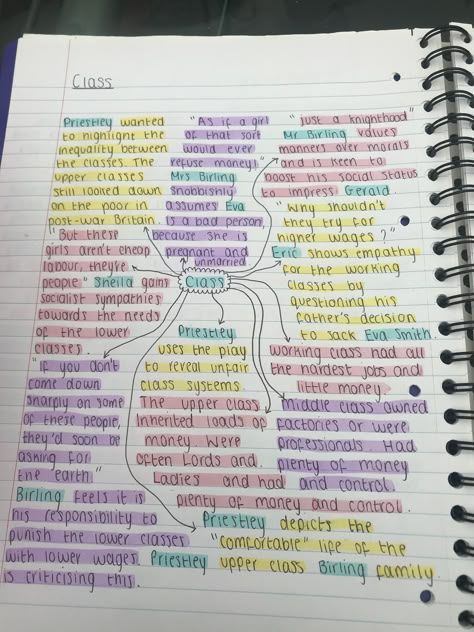 Class
Priestley wanted
to highlight the
inequality between
the classes. The
upper classes
still looked down
on the poor in
post-war Britain.
"As if a girl
of that sort
would ever
refuse money!"
Mrs Birling
snobbishly
assumes Eva
is a bad person,
because she is
pregnant and
unmarried
"just a knighthood"
Mr Birling values
manners over morals
and is keen to
boost his social status
to impress Gerald.
"But these
girls aren't cheap
labour, they're
people" Sheila gains
socialist sympathies
towards the needs
of the lower
classes.
Class
"Why shouldn't
they try for
higher wages?"
Eric shows empathy
for the working
classes by
questioning his
father's decision
to sack Eva Smith.
"If you don't
come down
sharply on some
of these people,
they'd soon be
asking for
the earth"
Birling feels it is
his responsibility to
punish the lower classes
with lower wages. Priestley
is criticising this.
Priestley
uses the play
to reveal unfair
class systems.
The upper class
inherited loads of
money. Were
often Lords and
Ladies and had
plenty of money and control.
working class had all
the hardest jobs and
little money.
Middle class owned
factories or were
professionals. Had
plenty of money
and control.
Priestley depicts the
"comfortable" life of the
upper class Birling family.